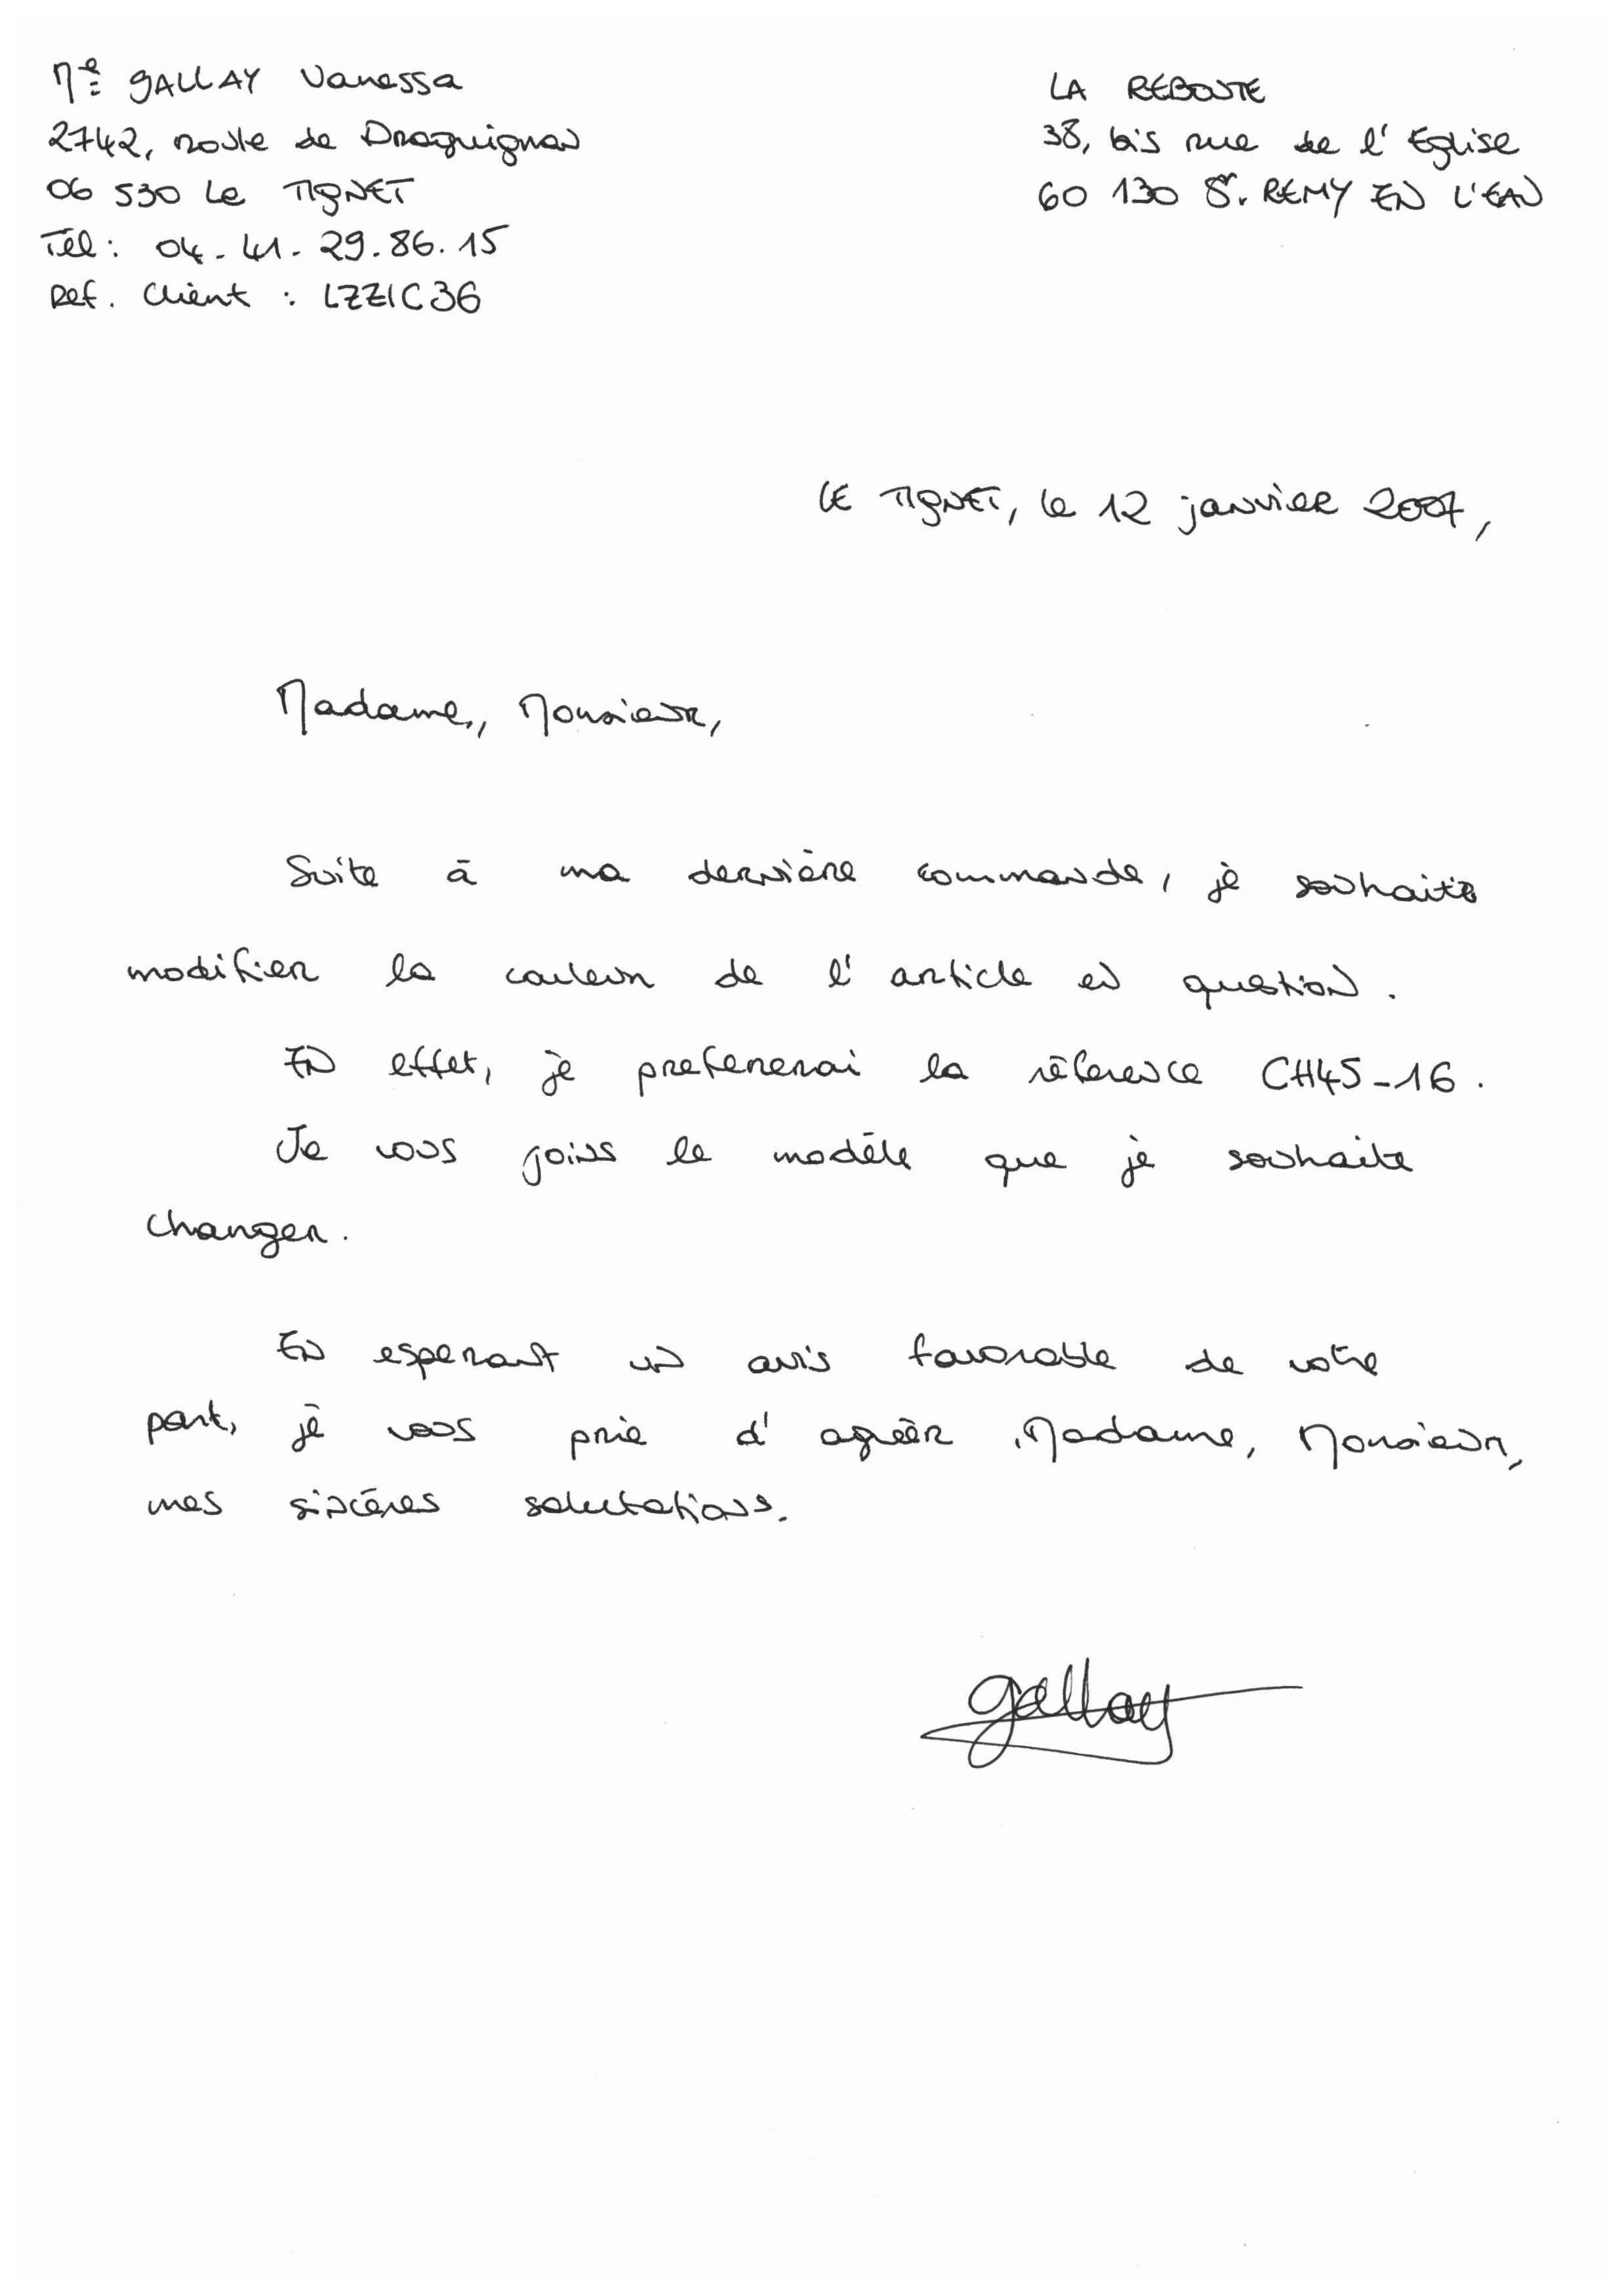 Me GALLAY Vanessa
2742, route de Draguignan
06 530 Le TIGNET
Tél : 04. 41. 29. 86. 15
Ref. Client : LZZIC36
LA REBOUTE
38, bis rue de l'Eglise
60 130 St. REMY EN L'EAU
LE TIGNET, le 12 janvier 2007,
Madame, Monsieur,
Suite à ma dernière commande, je souhaite
modifier la couleur de l'article en question.
En effet, je prefererai la référence CH45-16.
Je vous joins le modèle que je souhaite
changer.
En esperant un avis favorable de votre
part, je vous prie d'agréer, Madame, Monsieur,
mes sincères salutations.
Gallay